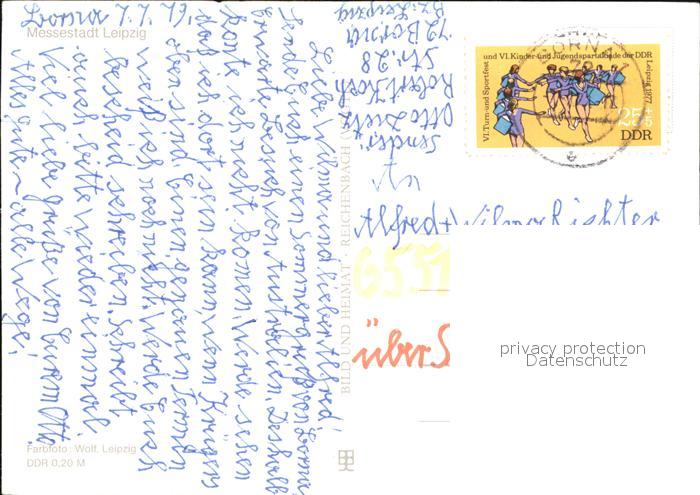 Messestadt Leipzig
Borna
Liebe Wilma und lieber Alfred!
Send Euch einen Sommergruß von Borna,
erwarte Besuch von Australien. Deshalb
Konte ich nicht konen. Werde sehen
das ich dort sein kann, wenn Krügers
oben sind. Einen genauen Termin
weiß ich noch nicht. Werde Euch
Bescheid schreiben. Schreibt
auch bitte wieder einmal.
Viel liebe Grüße von Eurem Otto.
Alles Gute
Sender:
Otto Dietz
Robert Koch
Str. 28
72 Borna
Bz. Leipzig
BILD UND HEIMAT · REICHENBACH
Farbfoto: Wolf, Leipzig
DDR 0,20 M
VI. Turn- und Sportfest
und VI. Kinder- und Jugendspartakiade der DDR
Leipzig 1977
25+5
DDR
BORNA
An
Alfred + Wilma Richter
6551
über S
privacy protection
Datenschutz